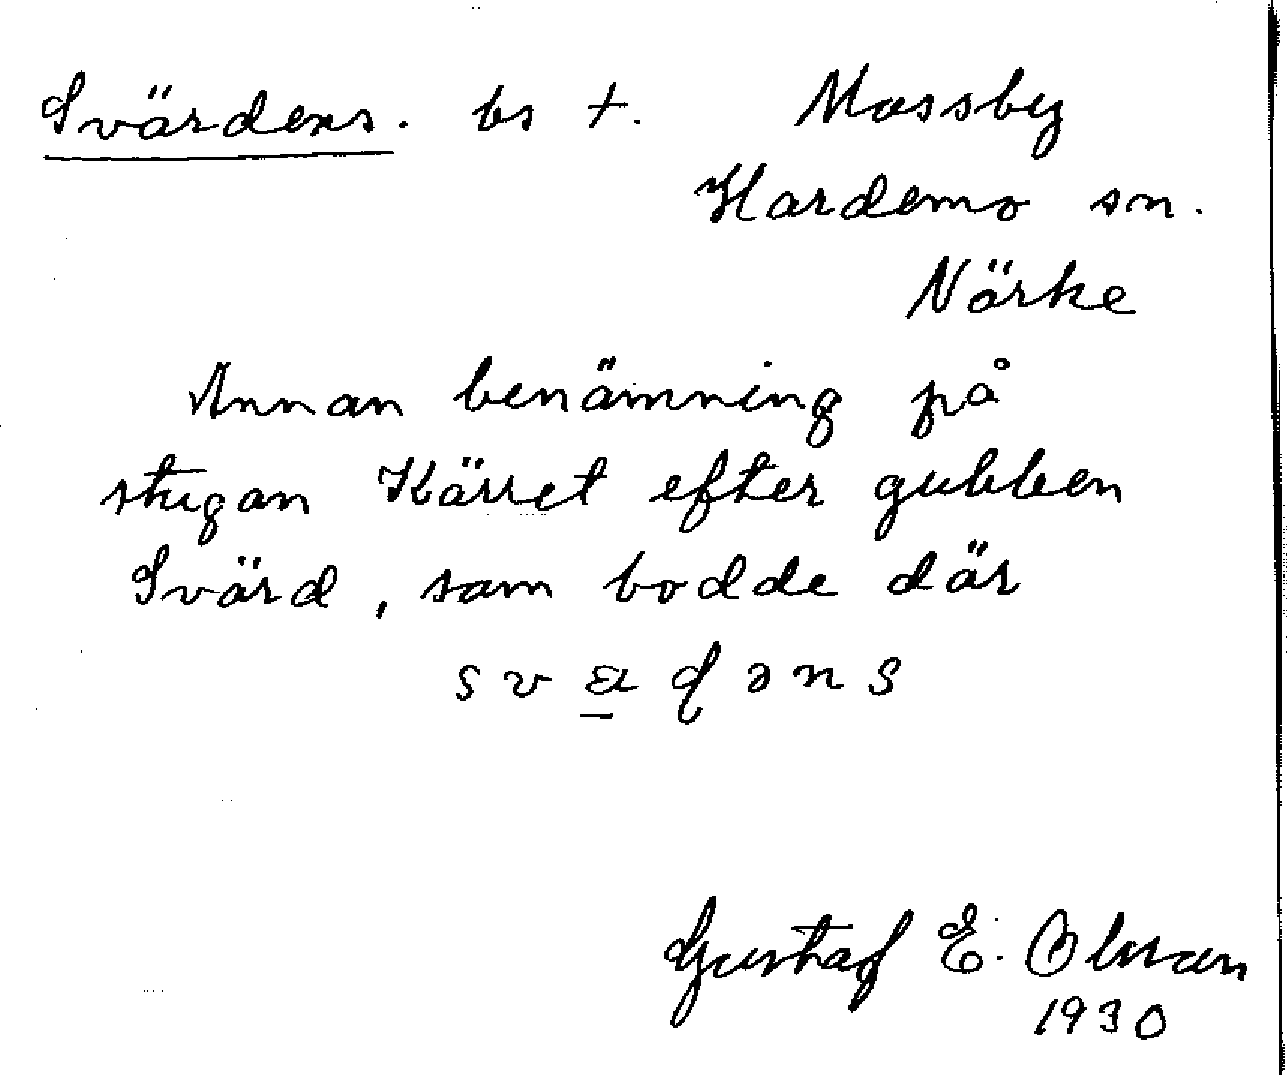 Svärdens. bs +. Mossby
Hardemo sn.
Närke
Annan benämning på
stugan Kärret efter gubben
Svärd, som bodde där
Gustaf E. Olsson
1930